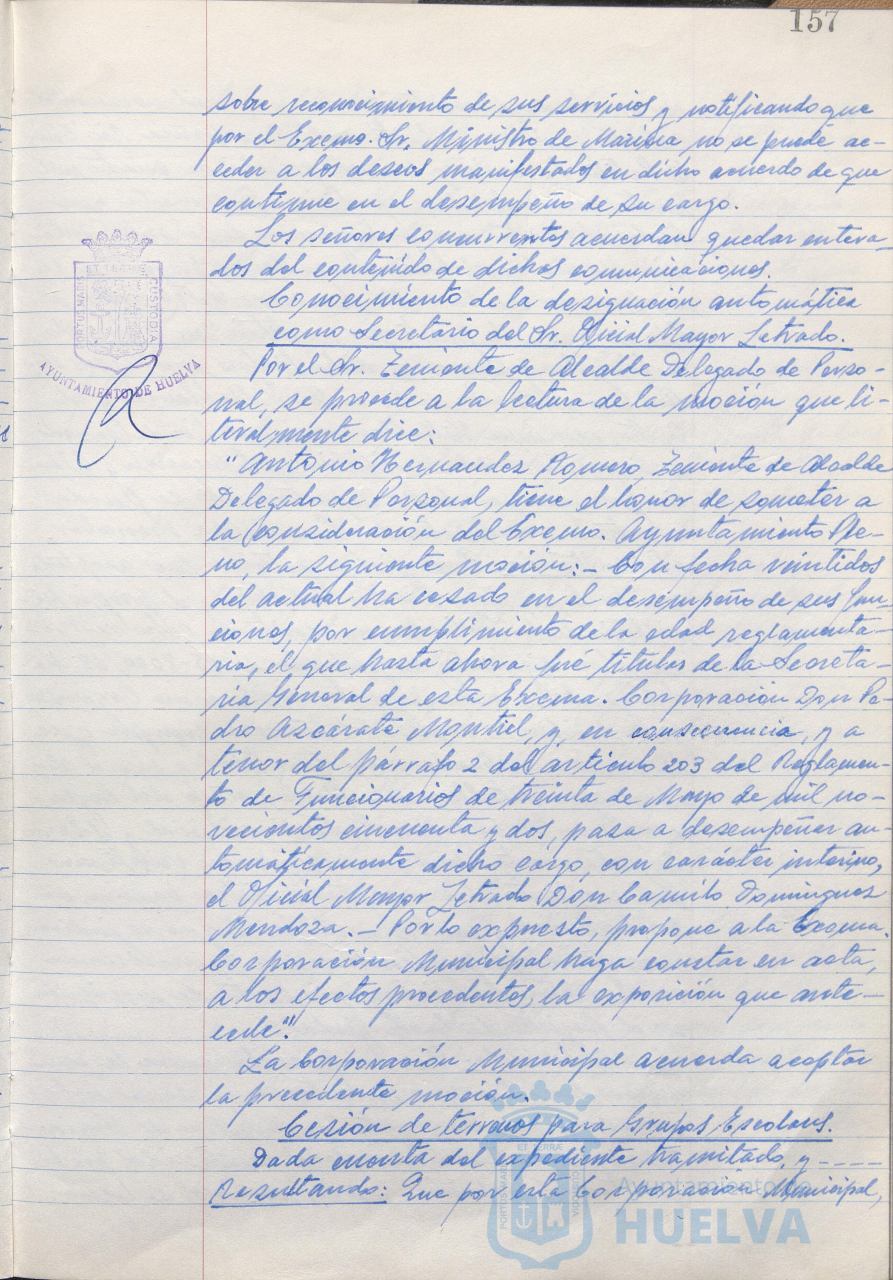 157
sobre reconocimiento de sus servicios y notificando que
por el Excmo. Sr. Ministro de Marina no se puede ac-
ceder a los deseos manifestados en dicho acuerdo de que
continue en el desempeño de su cargo.
Los señores concurrentes acuerdan quedar entera-
dos del contenido de dichas comunicaciones.
Conocimiento de la designación automática
como Secretario del Sr. Oficial Mayor Letrado.
Por el Sr. Teniente de Alcalde Delegado de Perso-
nal, se procede a la lectura de la moción que li-
teralmente dice:
"Antonio Hernandez Romero, Teniente de Alcalde
Delegado de Personal, tiene el honor de someter a
la consideración del Excmo. Ayuntamiento Ple-
no, la siguiente moción:- Con fecha veintidos
del actual ha cesado en el desempeño de sus fun-
ciones, por cumplimiento de la edad reglamenta-
ria, el que hasta ahora fué titular de la Secreta-
ria General de esta Excma. Corporación Don Pe-
dro Azcárate Montiel, y, en consecuencia, y a
tenor del párrafo 2 del articulo 203 del Reglamen-
to de Funcionarios de treinta de Mayo de mil no-
vecientos cincuenta y dos, pasa a desempeñar au-
tomáticamente dicho cargo, con carácter interino,
el Oficial Mayor Letrado Don Camilo Dominguez
Mendoza.- Por lo expuesto, propone a la Excma.
Corporación Municipal haga constar en acta,
a los efectos procedentes, la exposición que ante-
cede".
La Corporación Municipal acuerda aceptar
la precedente moción.
Cesión de terrenos para Grupos Escolares.
Dada cuenta del expediente tramitado, y ----
Resultando: Que por esta Corporación Municipal,
PORTUS MARIS ET TERRAE CUSTODIA
AYUNTAMIENTO DE HUELVA
Ayuntamiento de
HUELVA